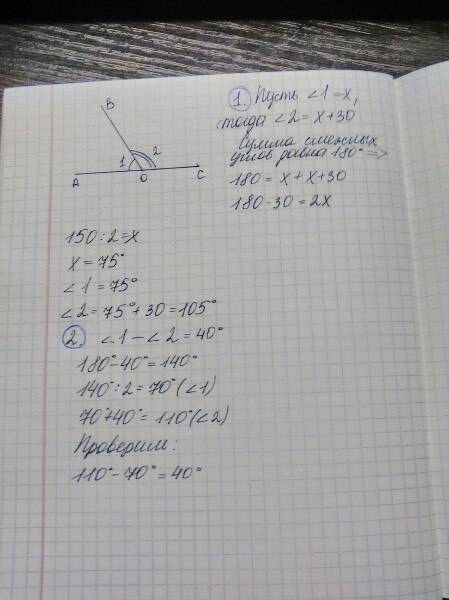 B
1 2
A O C
1. Пусть ∠1 = x,
тогда ∠2 = x+30
Сумма смежных
углов равна 180° =>
180 = x + x + 30
180 - 30 = 2x
150 : 2 = x
x = 75°
∠1 = 75°
∠2 = 75° + 30 = 105°
2. ∠1 - ∠2 = 40°
180° - 40° = 140°
140° : 2 = 70° (∠1)
70° + 40° = 110° (∠2)
Проверим:
110° - 70° = 40°